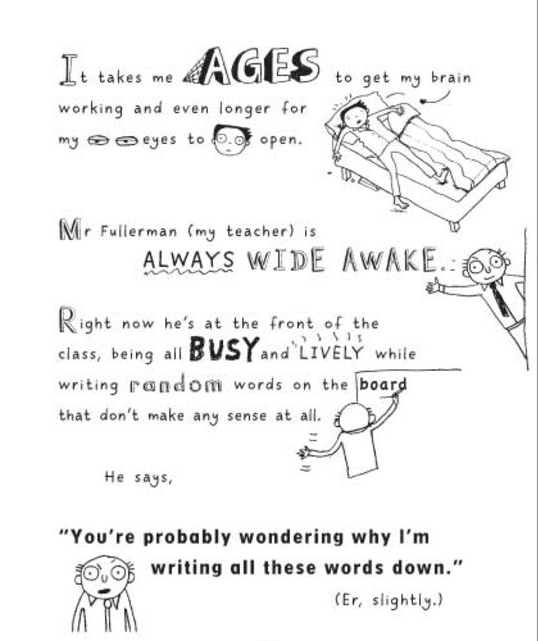 It takes me AGES to get my brain
working and even longer for
my eyes to open.
Mr Fullerman (my teacher) is
ALWAYS WIDE AWAKE..
Right now he's at the front of the
class, being all BUSY and LIVELY while
writing random words on the board
that don't make any sense at all.
He says,
"You're probably wondering why I'm
writing all these words down."
(Er, slightly.)